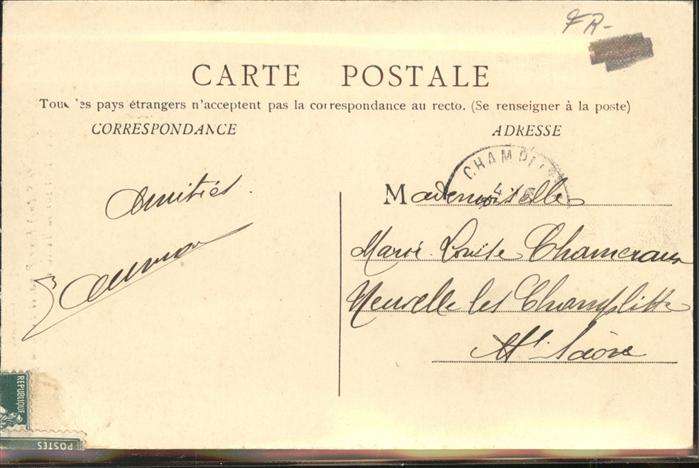 FR-
CARTE POSTALE
Tous les pays étrangers n'acceptent pas la correspondance au recto. (Se renseigner à la poste)
CORRESPONDANCE
ADRESSE
CHAMPLITTE
4
Amitiés.
Mademoiselle
Marie Louise
Neuvelle les Champlitte
Hte Saône
REPUBLIQUE
POSTES